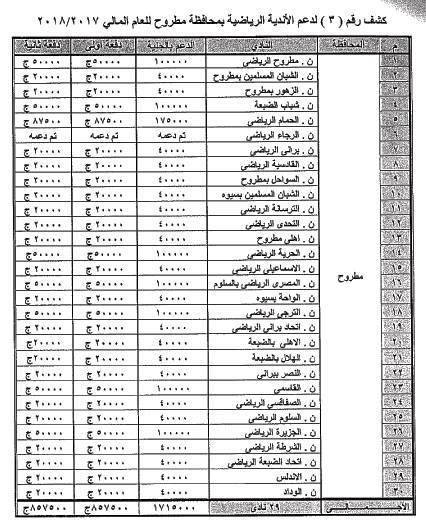 كشف رقم ( ٣ ) لدعم الأندية الرياضية بمحافظة مطروح للعام المالي ٢٠١٨/٢٠١٧
م المحافظة النادي الدعم بالجنية دفعة أولى دفعة ثانية
١ ن . مطروح الرياضي ١٠٠٠٠٠ ٥٠٠٠٠ج ٥٠٠٠٠ ج
٢ ن . الشبان المسلمين بمطروح ٤٠٠٠٠ ٢٠٠٠٠ ج ٢٠٠٠٠ ج
٣ ن . الزهور بمطروح ٤٠٠٠٠ ٢٠٠٠٠ ج ٢٠٠٠٠ ج
٤ ن . شباب الضبعة ١٠٠٠٠٠ ٥٠٠٠٠ ج ٥٠٠٠٠ ج
٥ ن . الحمام الرياضي ١٧٥٠٠٠ ٨٧٥٠٠ ج ٨٧٥٠٠ ج
٦ ن . الرجاء الرياضي تم دعمه تم دعمه تم دعمه
٧ ن . براني الرياضي ٤٠٠٠٠ ٢٠٠٠٠ ج ٢٠٠٠٠ ج
٨ ن . القادسية الرياضي ٤٠٠٠٠ ٢٠٠٠٠ ج ٢٠٠٠٠ ج
٩ ن . السواحل بمطروح ٤٠٠٠٠ ٢٠٠٠٠ ج ٢٠٠٠٠ ج
١٠ ن . الشبان المسلمين بسيوه ٤٠٠٠٠ ٢٠٠٠٠ ج ٢٠٠٠٠ ج
١١ ن . الترسانة الرياضي ٤٠٠٠٠ ٢٠٠٠٠ ج ٢٠٠٠٠ ج
١٢ ن . التحدى الرياضي ٤٠٠٠٠ ٢٠٠٠٠ ج ٢٠٠٠٠ ج
١٣ ن . أهلي مطروح ٤٠٠٠٠ ٢٠٠٠٠ ج ٢٠٠٠٠ ج
١٤ ن . الحرية الرياضي ١٠٠٠٠٠ ٥٠٠٠٠ج ٥٠٠٠٠ج
١٥ مطروح ن . الاسماعيلى الرياضي ٤٠٠٠٠ ٢٠٠٠٠ ج ٢٠٠٠٠ ج
١٦ ن . المصرى الرياضي بالسلوم ١٠٠٠٠٠ ٥٠٠٠٠ ج ٥٠٠٠٠ ج
١٧ ن . الواحة بسيوه ٤٠٠٠٠ ٢٠٠٠٠ ج ٢٠٠٠٠ ج
١٨ ن . الترجي الرياضي ١٠٠٠٠٠ ٥٠٠٠٠ ج ٥٠٠٠٠ ج
١٩ ن . اتحاد براني الرياضي ٤٠٠٠٠ ٢٠٠٠٠ ج ٢٠٠٠٠ ج
٢٠ ن . الاهلي بالضبعة ٤٠٠٠٠ ٢٠٠٠٠ ج ٢٠٠٠٠ج
٢١ ن . الهلال بالضبعة ٤٠٠٠٠ ٢٠٠٠٠ ج ٢٠٠٠٠ج
٢٢ ن . النصر ببرانى ٤٠٠٠٠ ٢٠٠٠٠ ج ٢٠٠٠٠ ج
٢٣ ن . القاسمي ١٠٠٠٠٠ ٥٠٠٠٠ ج ٥٠٠٠٠ ج
٢٤ ن . الصفاقسي الرياضي ٤٠٠٠٠ ٢٠٠٠٠ ج ٢٠٠٠٠ ج
٢٥ ن . السلوم الرياضي ٤٠٠٠٠ ٢٠٠٠٠ ج ٢٠٠٠٠ ج
٢٦ ن . الجزيرة الرياضي ١٠٠٠٠٠ ٥٠٠٠٠ ج ٥٠٠٠٠ ج
٢٧ ن . الشرطة الرياضي ٤٠٠٠٠ ٢٠٠٠٠ ج ٢٠٠٠٠ ج
٢٨ ن . اتحاد الضبعة الرياضي ٤٠٠٠٠ ٢٠٠٠٠ ج ٢٠٠٠٠ ج
٢٩ ن . الاندلس ٤٠٠٠٠ ٢٠٠٠٠ ج ٢٠٠٠٠ ج
٣٠ ن . الوداد ٤٠٠٠٠ ٢٠٠٠٠ ج ٢٠٠٠٠ ج
الإجمالــــي ٢٩ نادى ١٧١٥٠٠٠ ٨٥٧٥٠٠ج ٨٥٧٥٠٠ج